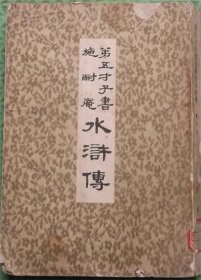 第五才子書
施耐庵
水滸傳